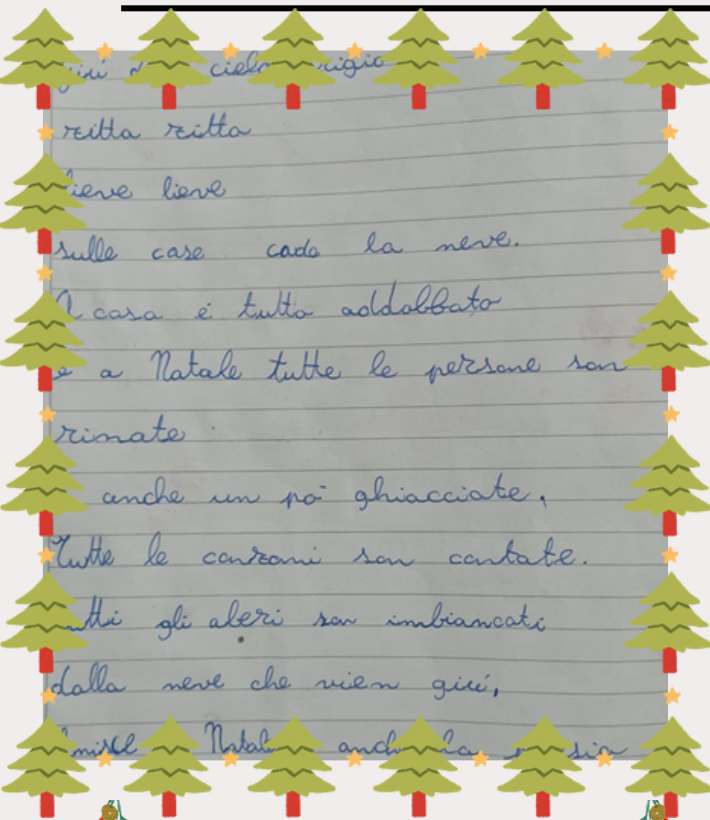 giú cielo grigio
zitta zitta
lieve lieve
sulle case cade la neve.
A casa é tutto addobbato
e a Natale tutte le persone son
rinate
anche un pó ghiacciate,
Tutte le canzoni son cantate.
Tutti gli aleri son imbiancati
dalla neve che vien giú,
Natale anche la